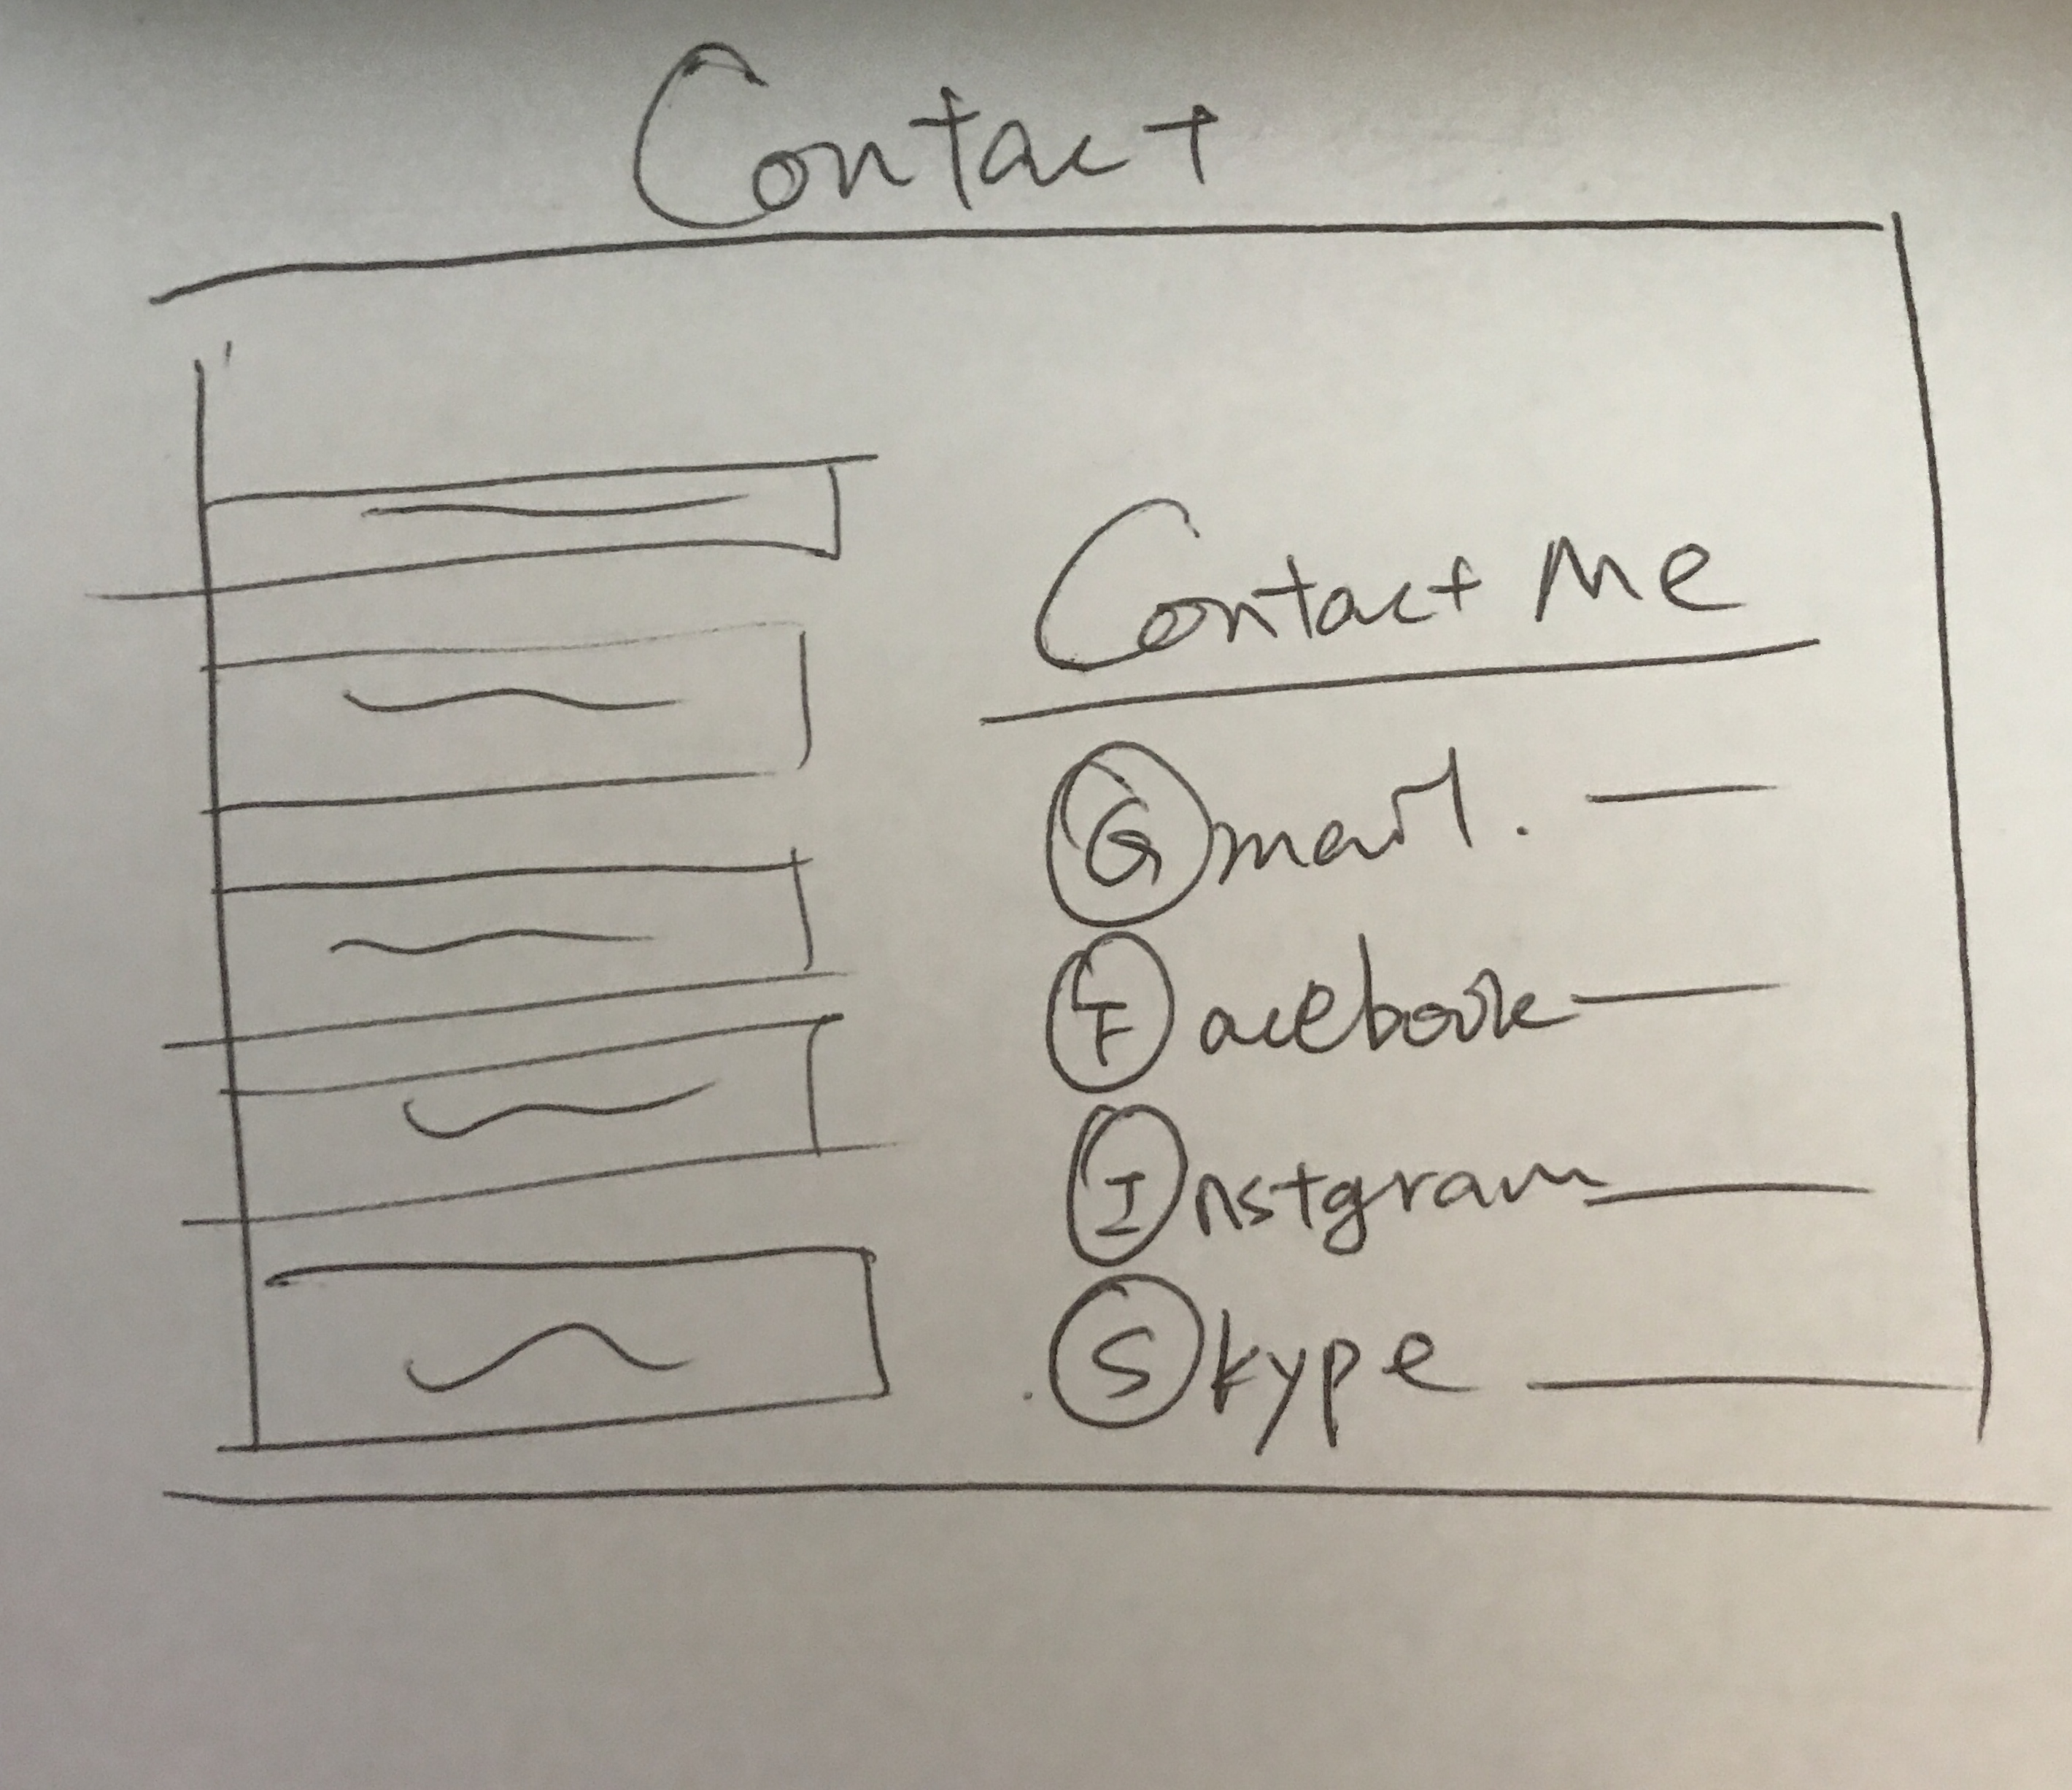 Contact
Contact Me
Gmail.
Facebook
Instgram
Skype